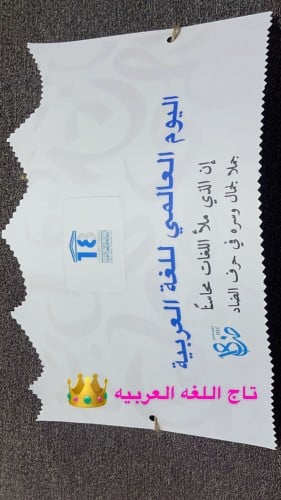 اليوم العالمي للغة العربية
إن الذي ملأ اللغات محاسنا
جعل الجمال وسره في حرف الضاد
٦٤
تاج اللغه العربيه